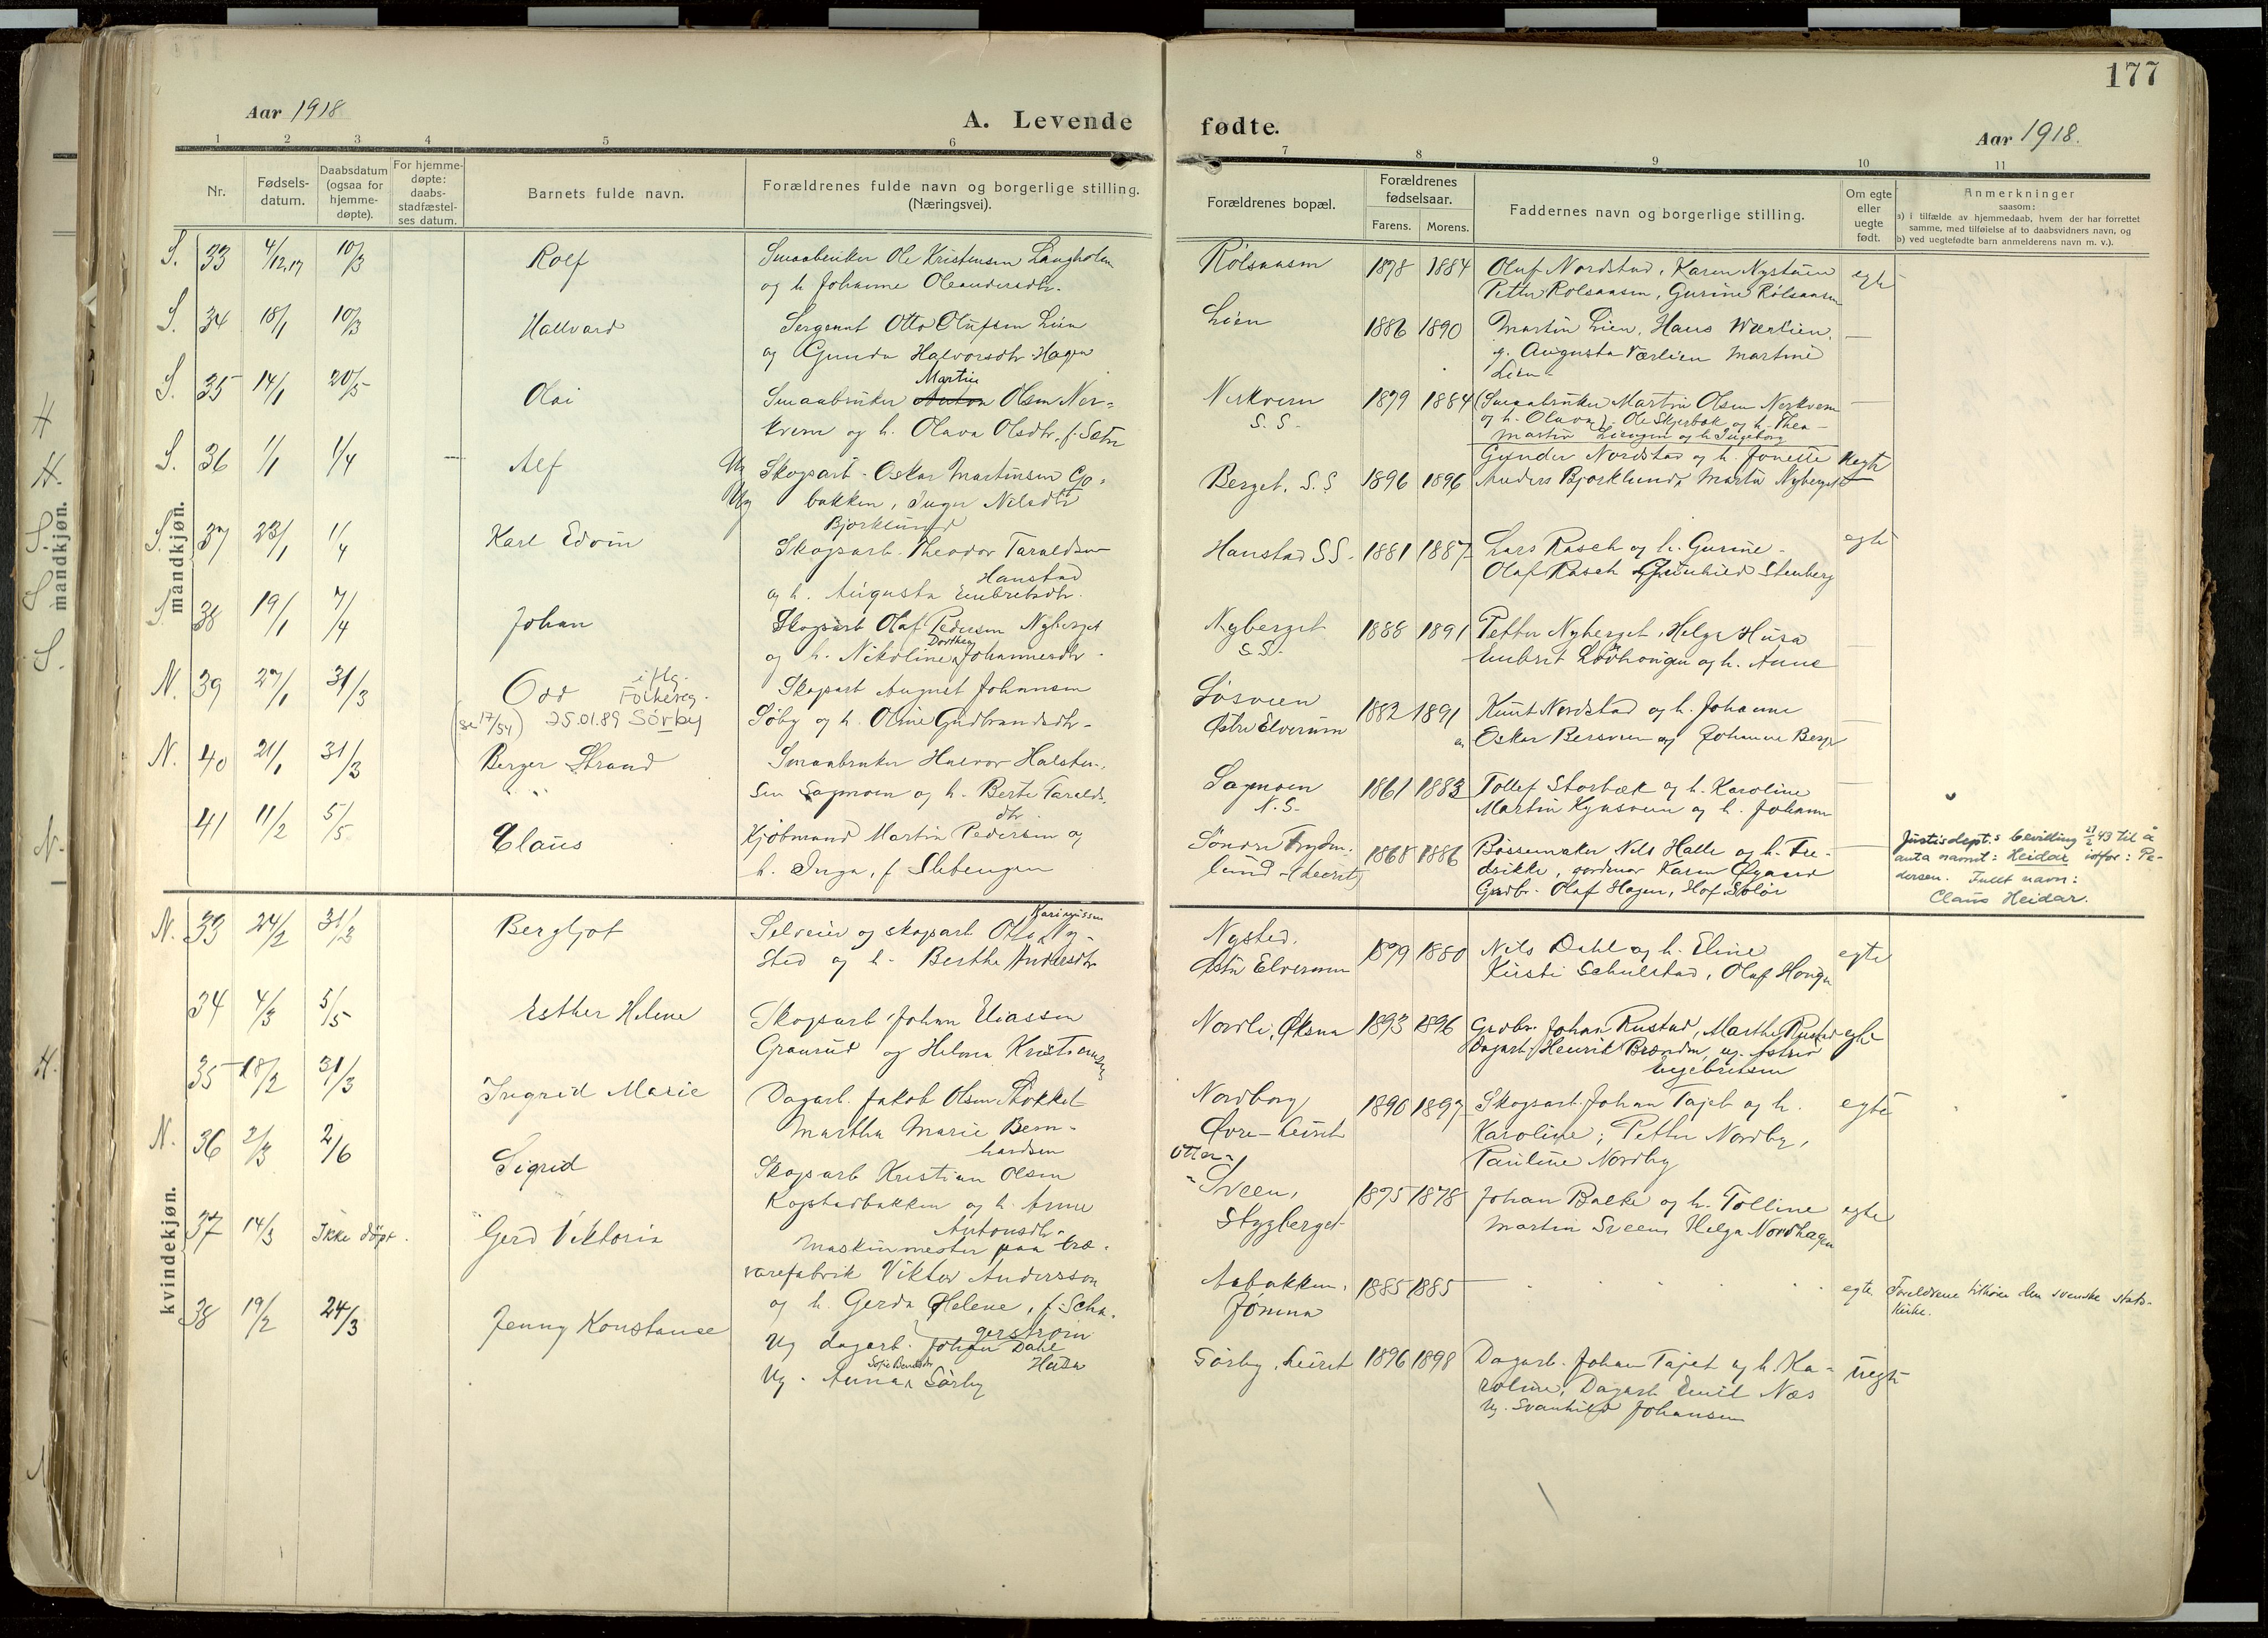 177
Aar 1918
A. Levende
fødte.
Aar 1918.
1 2 3 4 5 6
7 8 9 10 11
Nr.
Fødsels-
datum.
Daabsdatum
(ogsaa for
hjemme-
døpte).
For hjemme-
døpte:
daabs-
stadfæstel-
ses datum.
Barnets fulde navn.
Forældrenes fulde navn og borgerlige stilling.
(Næringsvei).
Forældrenes bopæl.
Forældrenes
fødselsaar.
Farens. Morens.
Faddernes navn og borgerlige stilling.
Om egte
eller
uegte
født.
Anmerkninger
saasom:
a) i tilfælde av hjemmedaab, hvem der har forrettet
samme, med tilføielse af to daabsvidners navn, og
b) ved uegtefødte barn anmelderens navn m. v.).
mandkjøn.
S. 33 4/12,17 10/3 Rolf
Smaabruker Ole Kristensen Langholm
og h. Johanne Oleandersdtr.
Rölsaasen 1878 1884
Oluf Nordstad, Karen Nystuen
Petter Rölsaasen, Gurine Rölsaasen
egte
S. 34 18/1 10/3 Hallvard
Sergeant Otto Olufsen Lien
og Gunda Halvorsdtr. Hagen
Lien 1886 1890
Martin Lien, Hans Værlien,
g. Augusta Værlien Martine
Lien
S. 35 14/1 20/5 Olai
Martin
Smaabruker Anton Olsen Ner-
kvern og h. Olava Olsdtr. f. Sætre
Nerkvern
S. S. 1879 1884
(Smaabruker Martin Olsen Nerkvern
og h. Olava) Ole Skjerbak og h. Thea
Martin og h. Ingeborg
S. 36 1/1 1/4 Alf
Ug Skogsarb. Oskar Martinsen Go-
Ug bakken, Inga Nilsdtr
Bjorklund
Berget, S. S 1896 1896
Gunder Nordstad og h. Jonette
Anders Bjorklund, Marta Nyberget
Uegte
S. 37 23/1 1/4 Karl Edvin
Skogsarb. Theodor Taraldsen
Hanstad
og h. Augusta Embretsdtr.
Hanstad S S. 1881 1887
Lars Rasch og h. Gurine
Olaf Rasch Gunhild Stenberg
egte
S. 38 19/1 7/4 Johan
Skogsarb Olaf Pedersen Nyberget
Dorthea
og h. Nikoline Johannesdtr.
Nyberget
S S. 1888 1891
Petter Nyberget, Helga Husa
Embret Lövhaugen og h. Anne
N. 39 27/1 31/3 Odd
iflg.
Folkereg.
(se 17/54) 25.01.89 Sörby
Skogsarb August Johansen
Söby og h. Oline Gudbrandsdtr.
Søsveen
Østre Elverum 1882 1891
Knut Nordstad og h. Johanne
Oskar Bersveen og Johanne Berge
N. 40 21/1 31/3 Berger Strand
Smaabruker Halvor Halsten-
sen Sagmoen og h. Berte Taralds-
dtr.
Sagmoen
N. S. 1861 1883
Tollef Storbæk og h. Karoline
Martin Kynsveen og h. Johanne
41 11/2 5/5 Claus
Kjöbmand Martin Pedersen og
h. Inga, f. Stebergen
Söndre Frydn-
lund (Leiret) 1868 1886
Bössemaker Nils Halle og h. Fre-
drikke, gardmor Karen Øgaard
Grdbr. Olaf Hagen, Hof Solör
Justisdept.s bevilling 27/2 43 til å
anta navnet: Heidar istfor: Pe-
dersen. Fullt navn:
Claus Heidar.
kvindekjøn.
N. 33 24/2 31/3 Bergljot
Karinussen
Selveier og skogsarb. Otto Ny-
sted og h. Berthe Andersdtr
Nysted,
Østre Elverum 1879 1880
Nils Dahl og h. Eline
Kirsti Schulstad, Olaf Haugen
egte
34 4/3 5/5 Esther Helene
Skogsarb. Johan Eliassen
Granrud og Helma Kristiansen
Nordli, Øksna 1893 1896
Grdbr. Johan Rustad, Marthe Rustad
Dagarb. Henrik Brænden, ug. Astrid
Engebretsen
egte
35 18/2 31/3 Ingrid Marie
Dagarb. Jakob Olsen Thokket
Martha Marie Bern-
hardsen
Nordborg
Øvre-Leiret 1890 1897
Skogsart. Johan Tajet og h.
Karoline, Petter Nordby,
Pauline Nordby
egte
N. 36 2/3 2/6 Sigrid
Skogsarb Kristian Olsen
Kopstadbakken og h. Anne
Antonsdtr.
Sveen,
Stygberget 1875 1878
Johan Bakke og h. Tolline
Martin Sveen, Helga Nordhagen
egte
37 14/3 Ikke döpt. Gerd Viktoria
Maskinmester paa træ-
varefabrik Viktor Andersson
og h. Gerda Helene, f. Scha-
gerström
Aabakken,
Jömna 1885 1885
egte
Foreldrene tilhörer den svenske stats-
kirke.
38 19/2 24/3 Jenny Konstanse
Ug dagarb. Johan Dahl
Ug. Anna Sörby
Sörby, Leiret 1896 1898
Dagarb. Johan Tajet og h. Ka-
roline, Dagarb Emil Næs
Ug. Svanhild Johansen
uegte